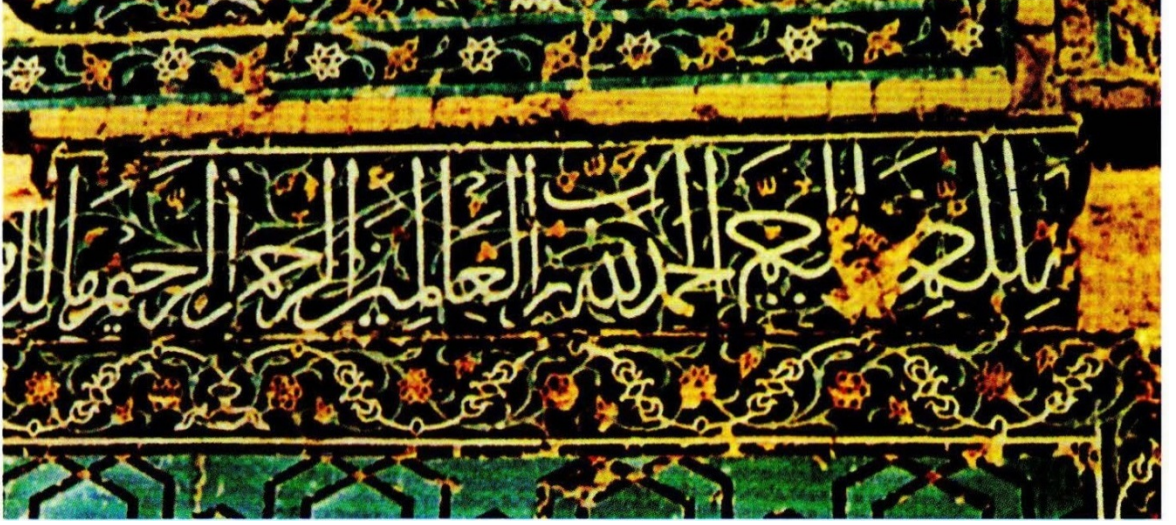 بسم الله الرحمن الرحيم الحمد لله رب العالمين الرحمن الرحيم